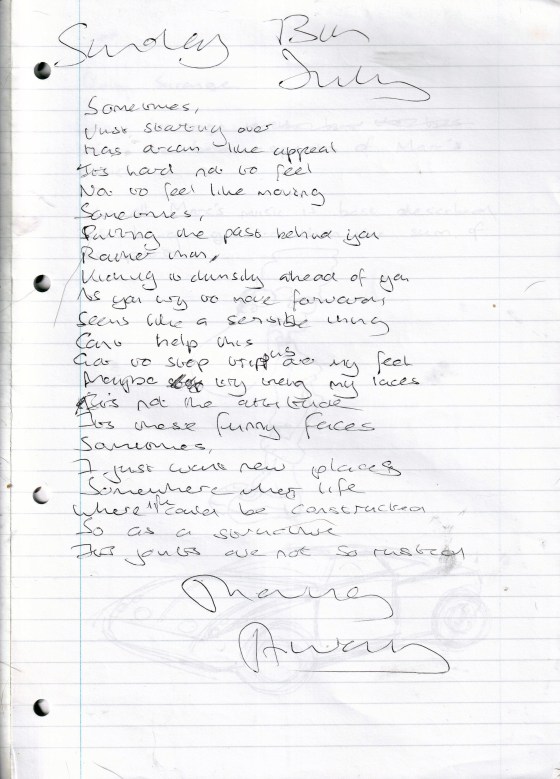 Sunday
July
Sometimes,
Just starting over
Has a certain like appeal
Its hard not to feel
Not to feel like moving
Sometimes,
Putting the past behind you
Rather than,
Kicking it clumsily ahead of you
As you try to move forwards
Seems like a sensible thing
Cant help this
Got to stop tripping over my feet
Maybe try tieing my laces
Its not the attitude
Its these funny faces
Sometimes,
I just want new places
Somewhere life
Where it could be constructed
So as a structure
Its joints are not so rusted
Away